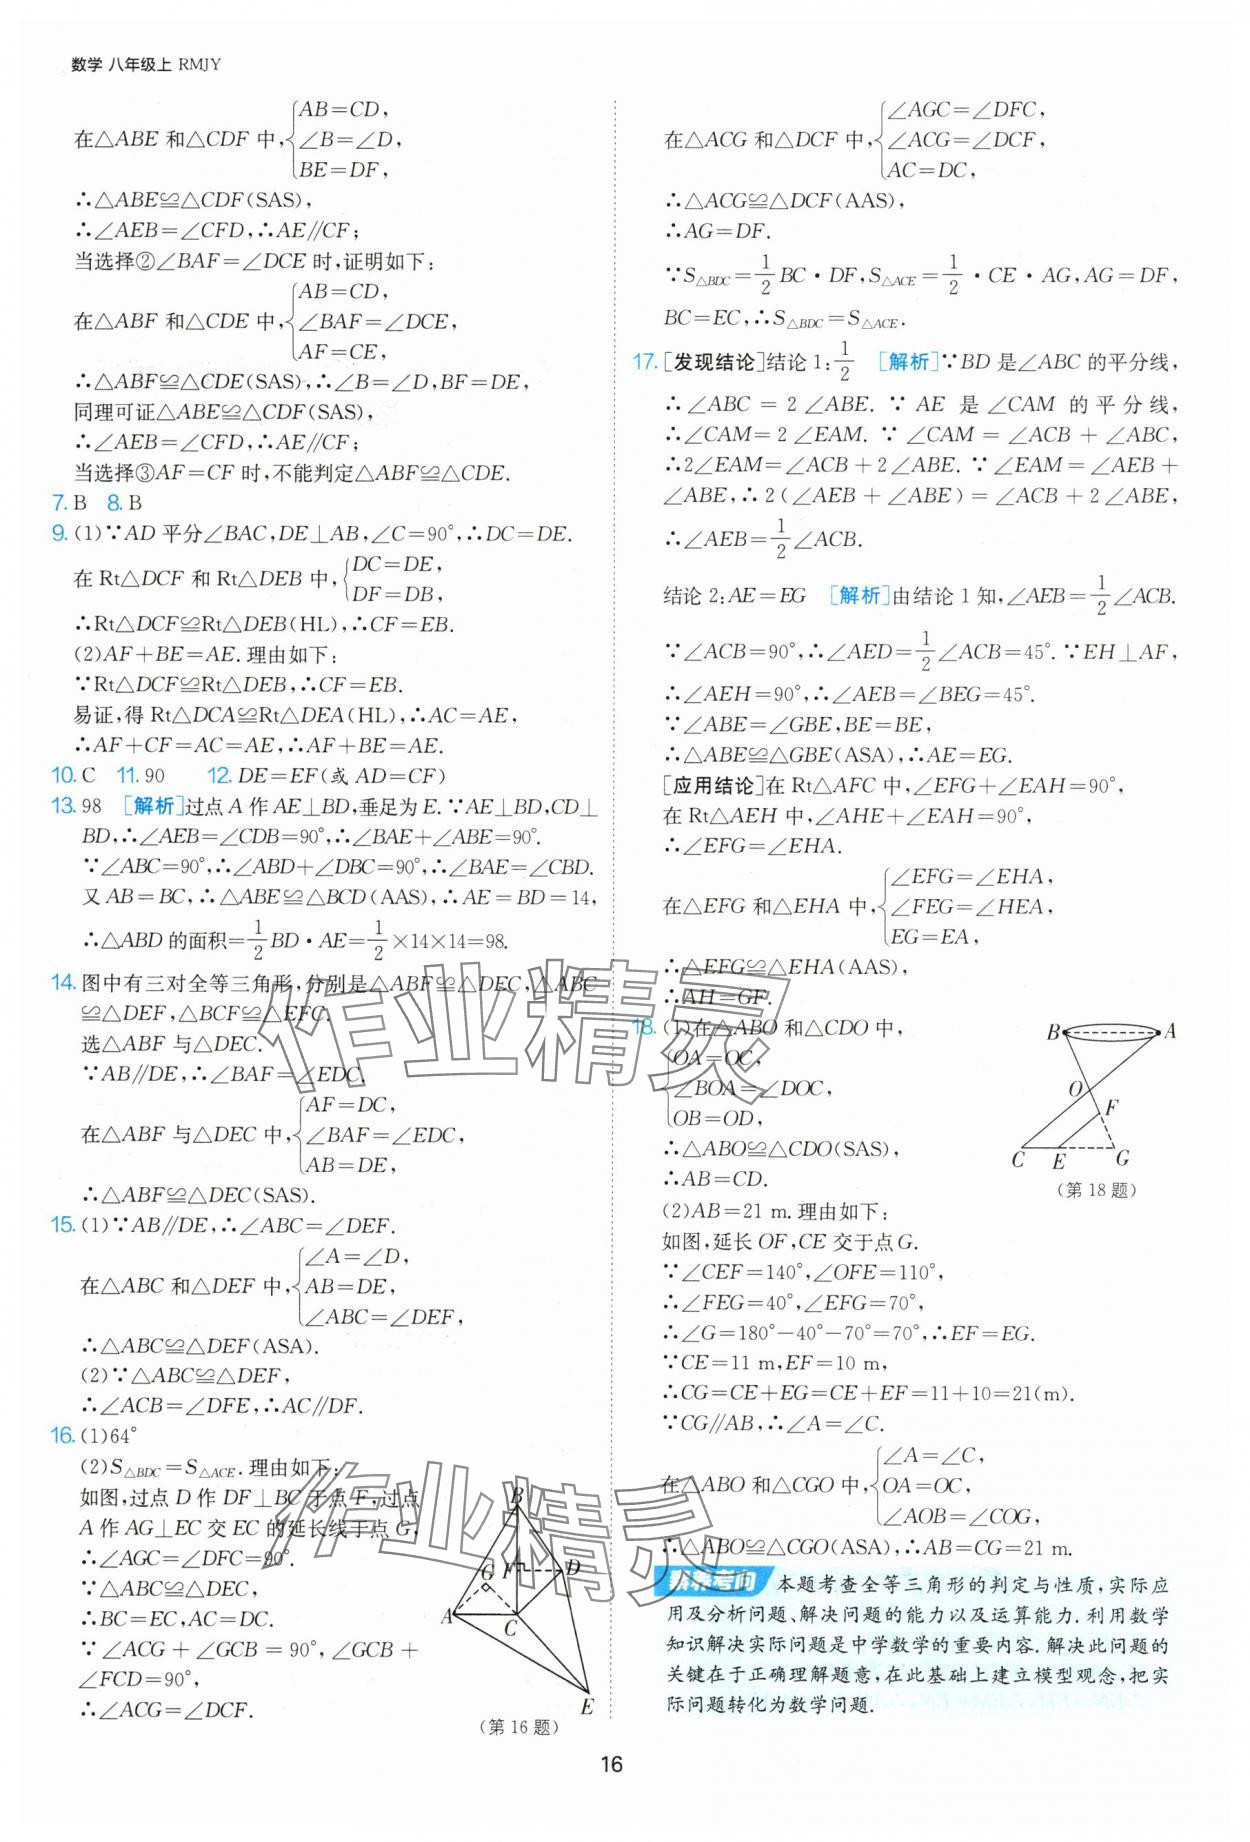 数学 八年级上 RMJY
AB=CD,
在△ABE 和△CDF 中,∠B=∠D,
BE=DF,
∴△ABE≌△CDF(SAS),
∴∠AEB=∠CFD,∴AE∥CF;
当选择②∠BAF=∠DCE 时,证明如下:
AB=CD,
在△ABF 和△CDE 中,∠BAF=∠DCE,
AF=CE,
∴△ABF≌△CDE(SAS),∴∠B=∠D,BF=DE,
同理可证△ABE≌△CDF(SAS),
∴∠AEB=∠CFD,∴AE∥CF;
当选择③AF=CF 时,不能判定△ABF≌△CDE.
7. B 8. B
9. (1)∵AD 平分∠BAC,DE⊥AB,∠C=90°,∴DC=DE.
在 Rt△DCF 和 Rt△DEB 中,{DC=DE,
DF=DB,
∴Rt△DCF≌Rt△DEB(HL),∴CF=EB.
(2)AF+BE=AE.理由如下:
∵Rt△DCF≌Rt△DEB,∴CF=EB.
易证,得 Rt△DCA≌Rt△DEA(HL),∴AC=AE,
∴AF+CF=AC=AE,∴AF+BE=AE.
10. C 11. 90 12. DE=EF(或 AD=CF)
13. 98 [解析]过点 A 作 AE⊥BD,垂足为 E.∵AE⊥BD,CD⊥
BD,∴∠AEB=∠CDB=90°,∴∠BAE+∠ABE=90°.
∵∠ABC=90°,∴∠ABD+∠DBC=90°,∴∠BAE=∠CBD.
又 AB=BC,∴△ABE≌△BCD(AAS),∴AE=BD=14,
∴△ABD 的面积=1/2BD·AE=1/2×14×14=98.
14. 图中有三对全等三角形,分别是△ABF≌△DEC,△ABC
≌△DEF,△BCF≌△EFC.
选△ABF 与△DEC.
∵AB∥DE,∴∠BAF=∠EDC.
AF=DC,
在△ABF 与△DEC 中,∠BAF=∠EDC,
AB=DE,
∴△ABF≌△DEC(SAS).
15. (1)∵AB∥DE,∴∠ABC=∠DEF.
∠A=∠D,
在△ABC 和△DEF 中,AB=DE,
∠ABC=∠DEF,
∴△ABC≌△DEF(ASA).
(2)∵△ABC≌△DEF,
∴∠ACB=∠DFE,∴AC∥DF.
16. (1)64°
(2)S△BDC=S△ACE.理由如下:
如图,过点 D 作 DF⊥BC 于点 F,过点
A 作 AG⊥EC 交 EC 的延长线于点 G,
∴∠AGC=∠DFC=90°.
∵△ABC≌△DEC,
∴BC=EC,AC=DC.
∵∠ACG+∠GCB=90°,∠GCB+
∠FCD=90°,
∴∠ACG=∠DCF.
B
F
D
G
A
C
E
(第 16 题)
∠AGC=∠DFC,
在△ACG 和△DCF 中,∠ACG=∠DCF,
AC=DC,
∴△ACG≌△DCF(AAS),
∴AG=DF.
∵S△BDC=1/2BC·DF,S△ACE=1/2·CE·AG,AG=DF,
BC=EC,∴S△BDC=S△ACE.
17. [发现结论]结论 1:1/2 [解析]∵BD 是∠ABC 的平分线,
∴∠ABC=2∠ABE.∵AE 是∠CAM 的平分线,
∴∠CAM=2∠EAM.∵∠CAM=∠ACB+∠ABC,
∴2∠EAM=∠ACB+2∠ABE.∵∠EAM=∠AEB+
∠ABE,∴2(∠AEB+∠ABE)=∠ACB+2∠ABE,
∴∠AEB=1/2∠ACB.
结论 2:AE=EG [解析]由结论 1 知,∠AEB=1/2∠ACB.
∵∠ACB=90°,∴∠AED=1/2∠ACB=45°.∵EH⊥AF,
∴∠AEH=90°,∴∠AEB=∠BEG=45°.
∵∠ABE=∠GBE,BE=BE,
∴△ABE≌△GBE(ASA),∴AE=EG.
[应用结论]在 Rt△AFC 中,∠EFG+∠EAH=90°,
在 Rt△AEH 中,∠AHE+∠EAH=90°,
∴∠EFG=∠EHA.
∠EFG=∠EHA,
在△EFG 和△EHA 中,∠FEG=∠HEA,
EG=EA,
∴△EFG≌△EHA(AAS),
∴AH=GF.
18. (1)在△ABO 和△CDO 中,
OA=OC,
∠BOA=∠DOC,
OB=OD,
∴△ABO≌△CDO(SAS),
∴AB=CD.
B
A
O
F
C
E
G
(第 18 题)
(2)AB=21 m.理由如下:
如图,延长 OF,CE 交于点 G.
∵∠CEF=140°,∠OFE=110°,
∴∠FEG=40°,∠EFG=70°,
∴∠G=180°-40°-70°=70°,∴EF=EG.
∵CE=11 m,EF=10 m,
∴CG=CE+EG=CE+EF=11+10=21(m).
∵CG∥AB,∴∠A=∠C.
∠A=∠C,
在△ABO 和△CGO 中,OA=OC,
∠AOB=∠COG,
∴△ABO≌△CGO(ASA),∴AB=CG=21 m.
素养考向 本题考查全等三角形的判定与性质,实际应
用及分析问题、解决问题的能力以及运算能力.利用数学
知识解决实际问题是中学数学的重要内容.解决此问题的
关键在于正确理解题意,在此基础上建立模型观念,把实
际问题转化为数学问题.
16
作业精灵
作业精灵